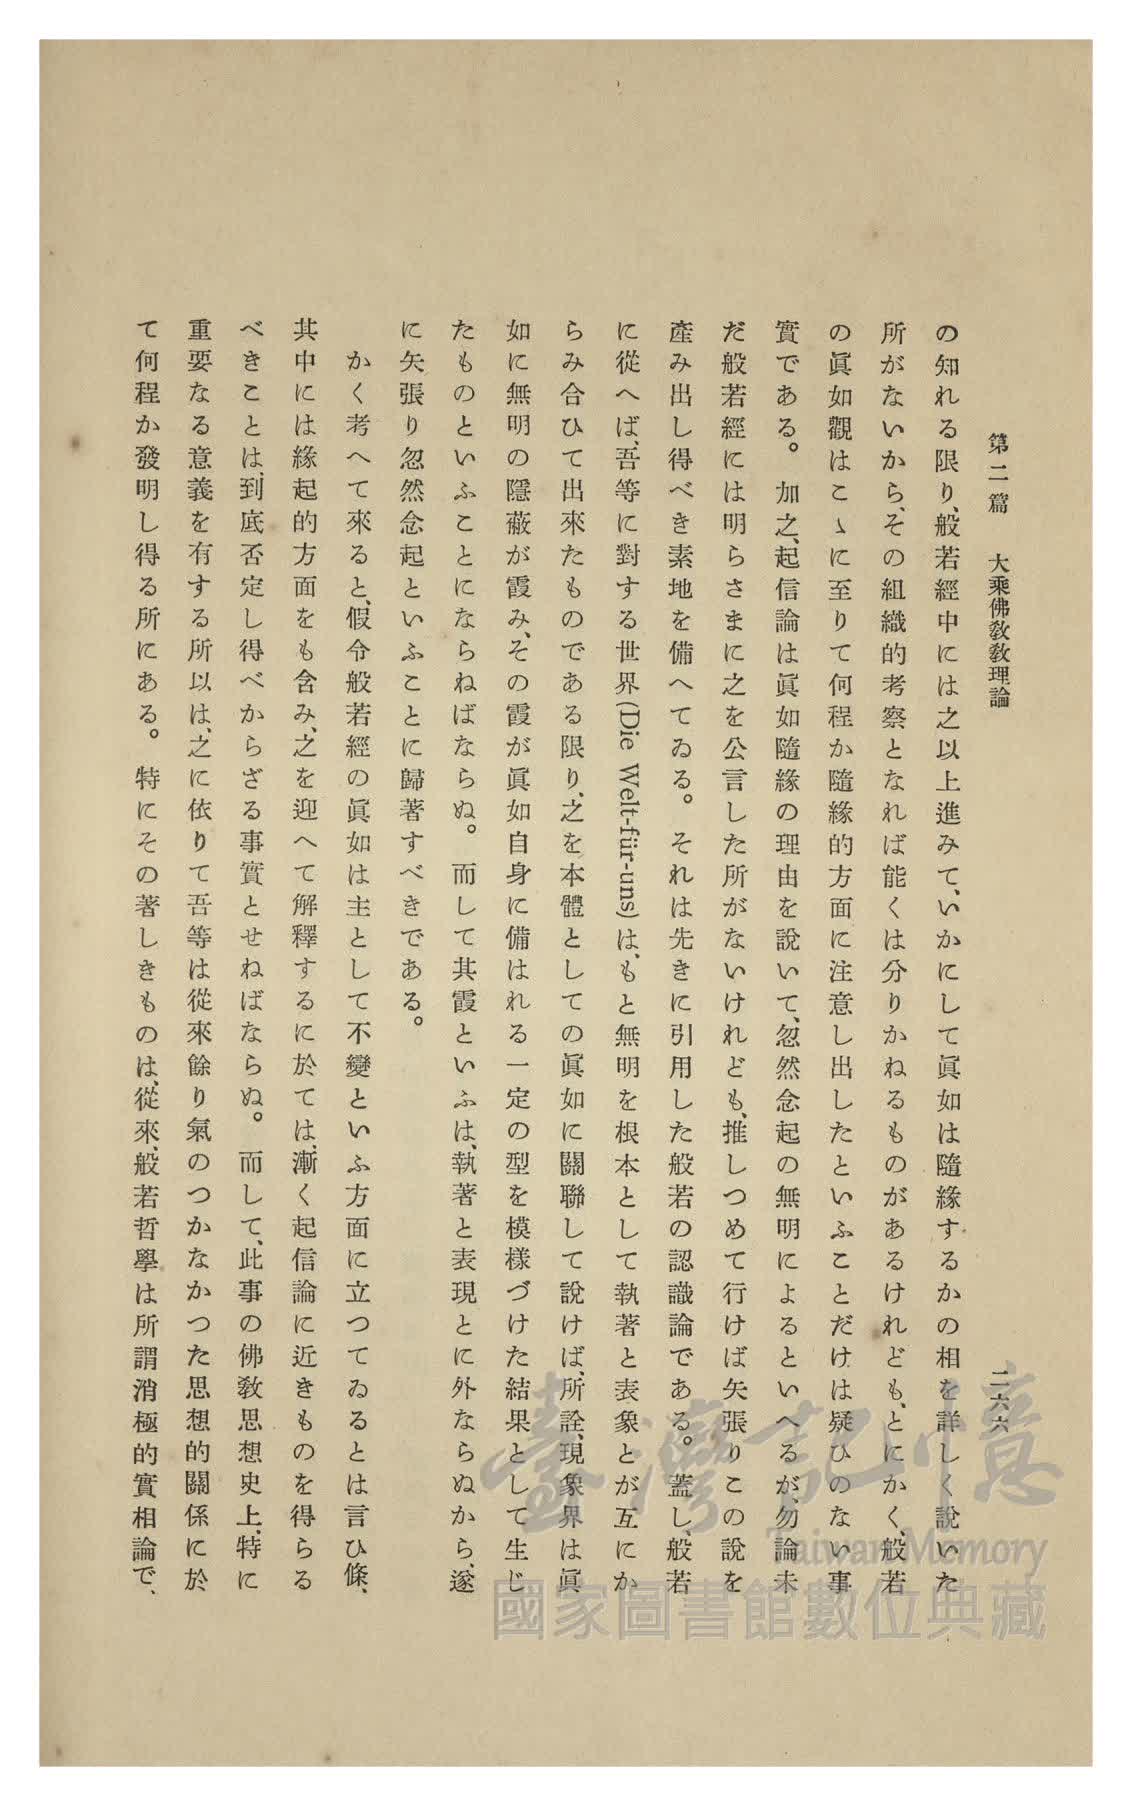 第二篇　大乘佛敎敎理論
二六六
の知れる限り、般若經中には之以上進みて、いかにして眞如は隨緣するかの相を詳しく說いた
所がないから、その組織的考察となれば能くは分りかねるものがあるけれども、とにかく、般若
の眞如觀はこゝに至りて何程か隨緣的方面に注意し出したといふことだけは疑ひのない事
實である。加之、起信論は眞如隨緣の理由を說いて、忽然念起の無明によるといへるが、勿論未
だ般若經には明らさまに之を公言した所がないけれども、推しつめて行けば矢張りこの說を
產み出し得べき素地を備へてゐる。それは先きに引用した般若の認識論である。蓋し、般若
に從へば、吾等に對する世界(Die Welt-für-uns)は、もと無明を根本として執著と表象とが互にか
らみ合ひて出來たものである限り、之を本體としての眞如に關聯して說けば、所詮、現象界は眞
如に無明の隱蔽が霞み、その霞が眞如自身に備はれる一定の型を模樣づけた結果として生じ
たものといふことにならねばならぬ。而して其霞といふは、執著と表現とに外ならぬから、遂
に矢張り忽然念起といふことに歸著すべきである。
かく考へて來ると、假令般若經の眞如は主として不變といふ方面に立つてゐるとは言ひ條、
其中には緣起的方面をも含み、之を迎へて解釋するに於ては、漸く起信論に近きものを得らる
べきことは、到底否定し得べからざる事實とせねばならぬ。而して、此事の佛敎思想史上、特に
重要なる意義を有する所以は、之に依りて吾等は從來餘り氣のつかなかつた思想的關係に於
て何程か發明し得る所にある。特にその著しきものは、從來、般若哲學は所謂消極的實相論で、
臺灣記憶
Taiwan Memory
國家圖書館數位典藏